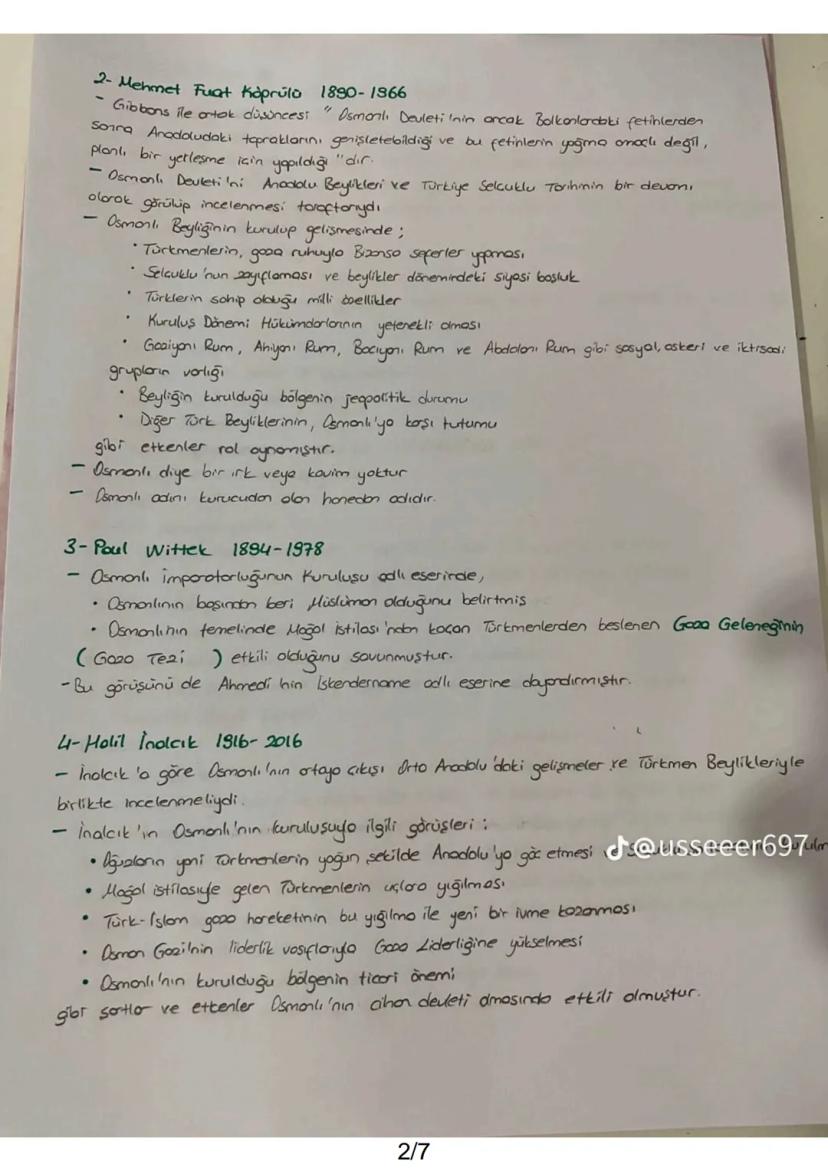 2- Mehmet Fuat Köprülü 1890-1966
- Gibbons ile ortak düşüncesi "Osmanlı Devleti'nin ancak Balkanlardaki fetihlerden
sonra Anadoludaki topraklarını genişletebildiği ve bu fetihlerin yağma amaçlı değil,
planlı bir yerleşme için yapıldığı" dır.
- Osmanlı Devleti'ni Anadolu Beylikleri ve Türkiye Selçuklu Tarihinin bir devamı
olarak görülüp incelenmesi taraftarıydı
- Osmanlı Beyliğinin kurulup gelişmesinde ;
• Türkmenlerin, gaza ruhuyla Bizansa seferler yapması
• Selçuklu'nun zayıflaması ve beylikler dönemindeki siyasi boşluk
• Türklerin sahip olduğu milli özellikler
• Kuruluş Dönemi Hükümdarlarının yetenekli olması
• Gaziyanı Rum, Ahiyanı Rum, Bacıyanı Rum ve Abdalanı Rum gibi sosyal, askeri ve iktisadi
grupların varlığı
• Beyliğin kurulduğu bölgenin jeopolitik durumu
• Diğer Türk Beyliklerinin, Osmanlı'ya karşı tutumu
gibi etkenler rol oynamıştır.
- Osmanlı diye bir ırk veya kavim yoktur
- Osmanlı adını kurucudan alan hanedan adıdır.
3- Paul Wittek 1894-1978
- Osmanlı İmparatorluğunun Kuruluşu adlı eserinde,
• Osmanlının başından beri Müslüman olduğunu belirtmiş
• Osmanlının temelinde Moğol istilası'ndan kaçan Türkmenlerden beslenen Gaza Geleneğinin
( Gaza Tezi ) etkili olduğunu savunmuştur.
- Bu görüşünü de Ahmedi'nin İskendername adlı eserine dayandırmıştır.
4- Halil İnalcık 1916-2016
- İnalcık'a göre Osmanlı'nın ortaya çıkışı Orta Anadolu'daki gelişmeler ve Türkmen Beylikleriyle
birlikte incelenmeliydi.
- İnalcık'ın Osmanlı'nın kuruluşuyla ilgili görüşleri :
• Oğuzların yani Türkmenlerin yoğun şekilde Anadolu'ya göç etmesi
@usseeer697
• Moğol istilasıyle gelen Türkmenlerin uçlara yığılması
• Türk-İslam gaza hareketinin bu yığılma ile yeni bir ivme kazanması
• Osman Gazi'nin liderlik vasıflarıyla Gaza Liderliğine yükselmesi
• Osmanlı'nın kurulduğu bölgenin ticari önemi
gibi şartlar ve etkenler Osmanlı'nın cihan devleti olmasında etkili olmuştur.
2/7